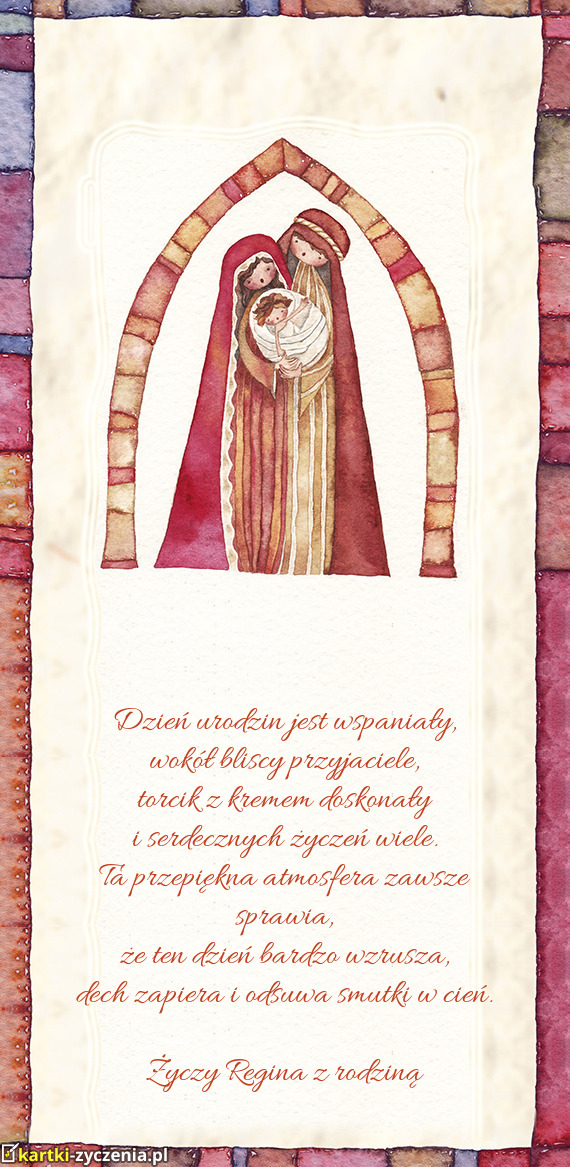 Dzień urodzin jest wspaniały,
wokół bliscy przyjaciele,
torcik z kremem doskonały
i serdecznych życzeń wiele.
Ta przepiękna atmosfera zawsze
sprawia,
że ten dzień bardzo wzrusza,
dech zapiera i odsuwa smutki w cień.
Życzy Regina z rodziną
kartki-zyczenia.pl